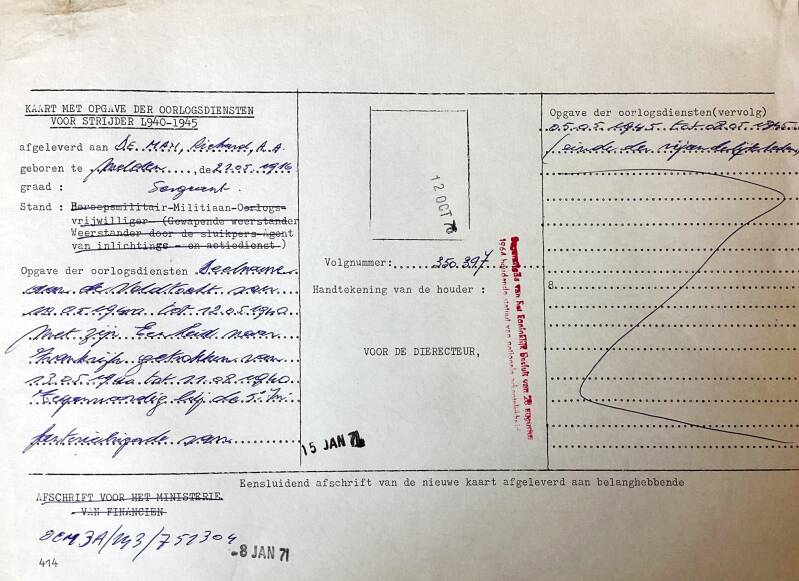 KAART MET OPGAVE DER OORLOGSDIENSTEN
VOOR STRIJDER 1940-1945
afgeleverd aan DE.MAN, Richard, A.A.
geboren te Melden...., de 21.05.1910
graad : Sergeant.
Stand : Beroepsmilitair-Militiaan-Oorlogs-
vrijwilliger (Gewapende weerstander
Weerstander door de sluikpers-Agent
van inlichtings - en actiedienst )
Opgave der oorlogsdiensten Deelname
aan de Veldtocht van
10.05.1940 tot 12.05.1940
Met zijn Eenheid naar
Frankrijk getrokken van
13.05.1940 tot 11.08.1940
Tegenwoordig bij de 5° In
fanteriebrigade van
12 OCT 70
Volgnummer: 350.397
Handtekening van de houder :
VOOR DE DIERECTEUR,
15 JAN 71
van het Koninklijk Besluit van 28 augustus
1964 houdende statuut van nationale
Opgave der oorlogsdiensten(vervolg)
05.05.1945 tot 08.05.1945
(einde der vijandelijkheden)
8.
Eensluidend afschrift van de nieuwe kaart afgeleverd aan belanghebbende
AFSCHRIFT VOOR HET MINISTERIE
- VAN FINANCIEN
OCM3A/143/751304
-8 JAN 71
414